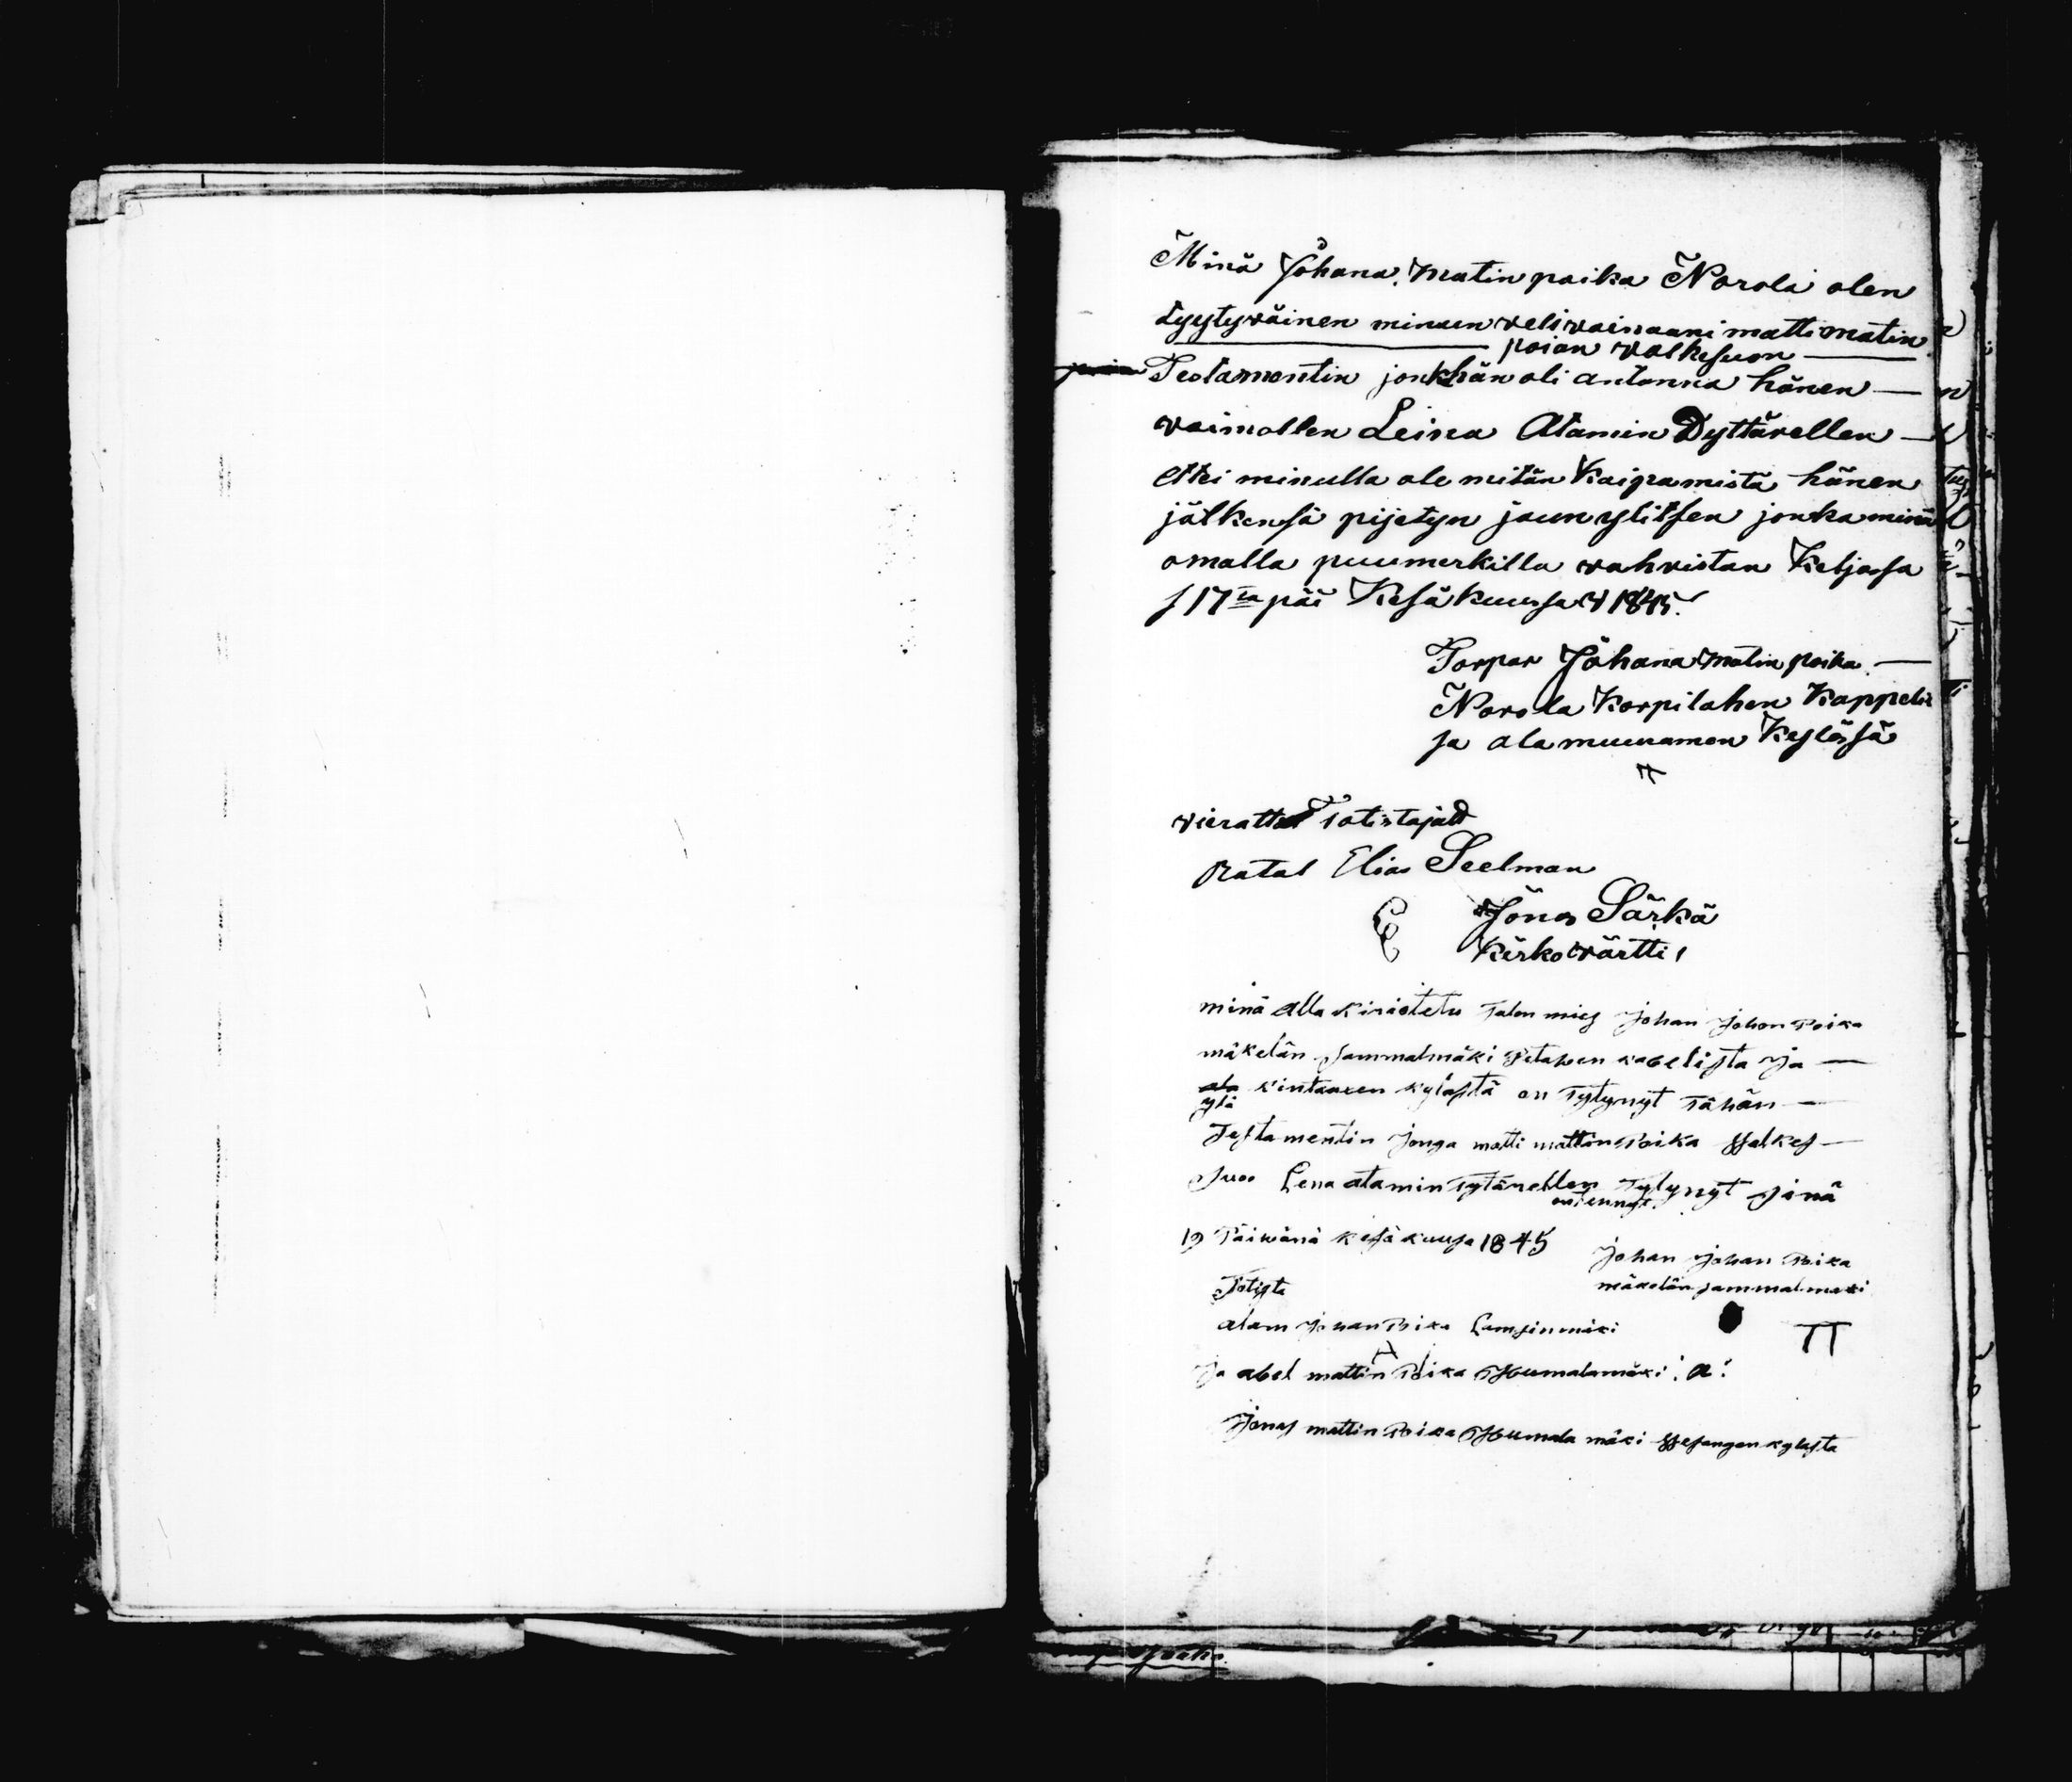 Minä Johana matin poika Norola olen
tyytyväinen minun veli vainaani matti matin
poian valkesuon
Testamentin jonk hän oli antanna hänen
vaimollen Leina Atamin Dyttärellen
ettei minulla ole mitän Kaipamista hänen
jälkensä pijetyn jaun ylitsen jonka minä
omalla puumerkillä vahvistan Keljossa
17 ta päi Kesäkuussa v 1845.
Torpar Johana matin poika
Norola Korpilahen Kappeli
sa ala muuramen Kylässä
vieratt Totistajad
Ratal Elias Seelman
Jonas Särkä
Kirkovärtti
minä alla kiriotetu Talon mies Johan Johon Poika
mäkelän Sammalmäki Petahen kabelista ja
ylä kintauen kylästä on Tytynyt Tähän
Testamentin Jonga matti mattin Poika Walkes
Suo Lena atamin Tytärellen Tytynyt sinä
19 Päiwänä kesä kuusa 1845
Johan Johan Poika
mäkelän Sammalmäki
Totista
atam Johan Poika Lamsinmäki
ja abel mattin Poika Humalamäki : a :
Jonas mattin Poika Humala mäki Wesangan kylästa